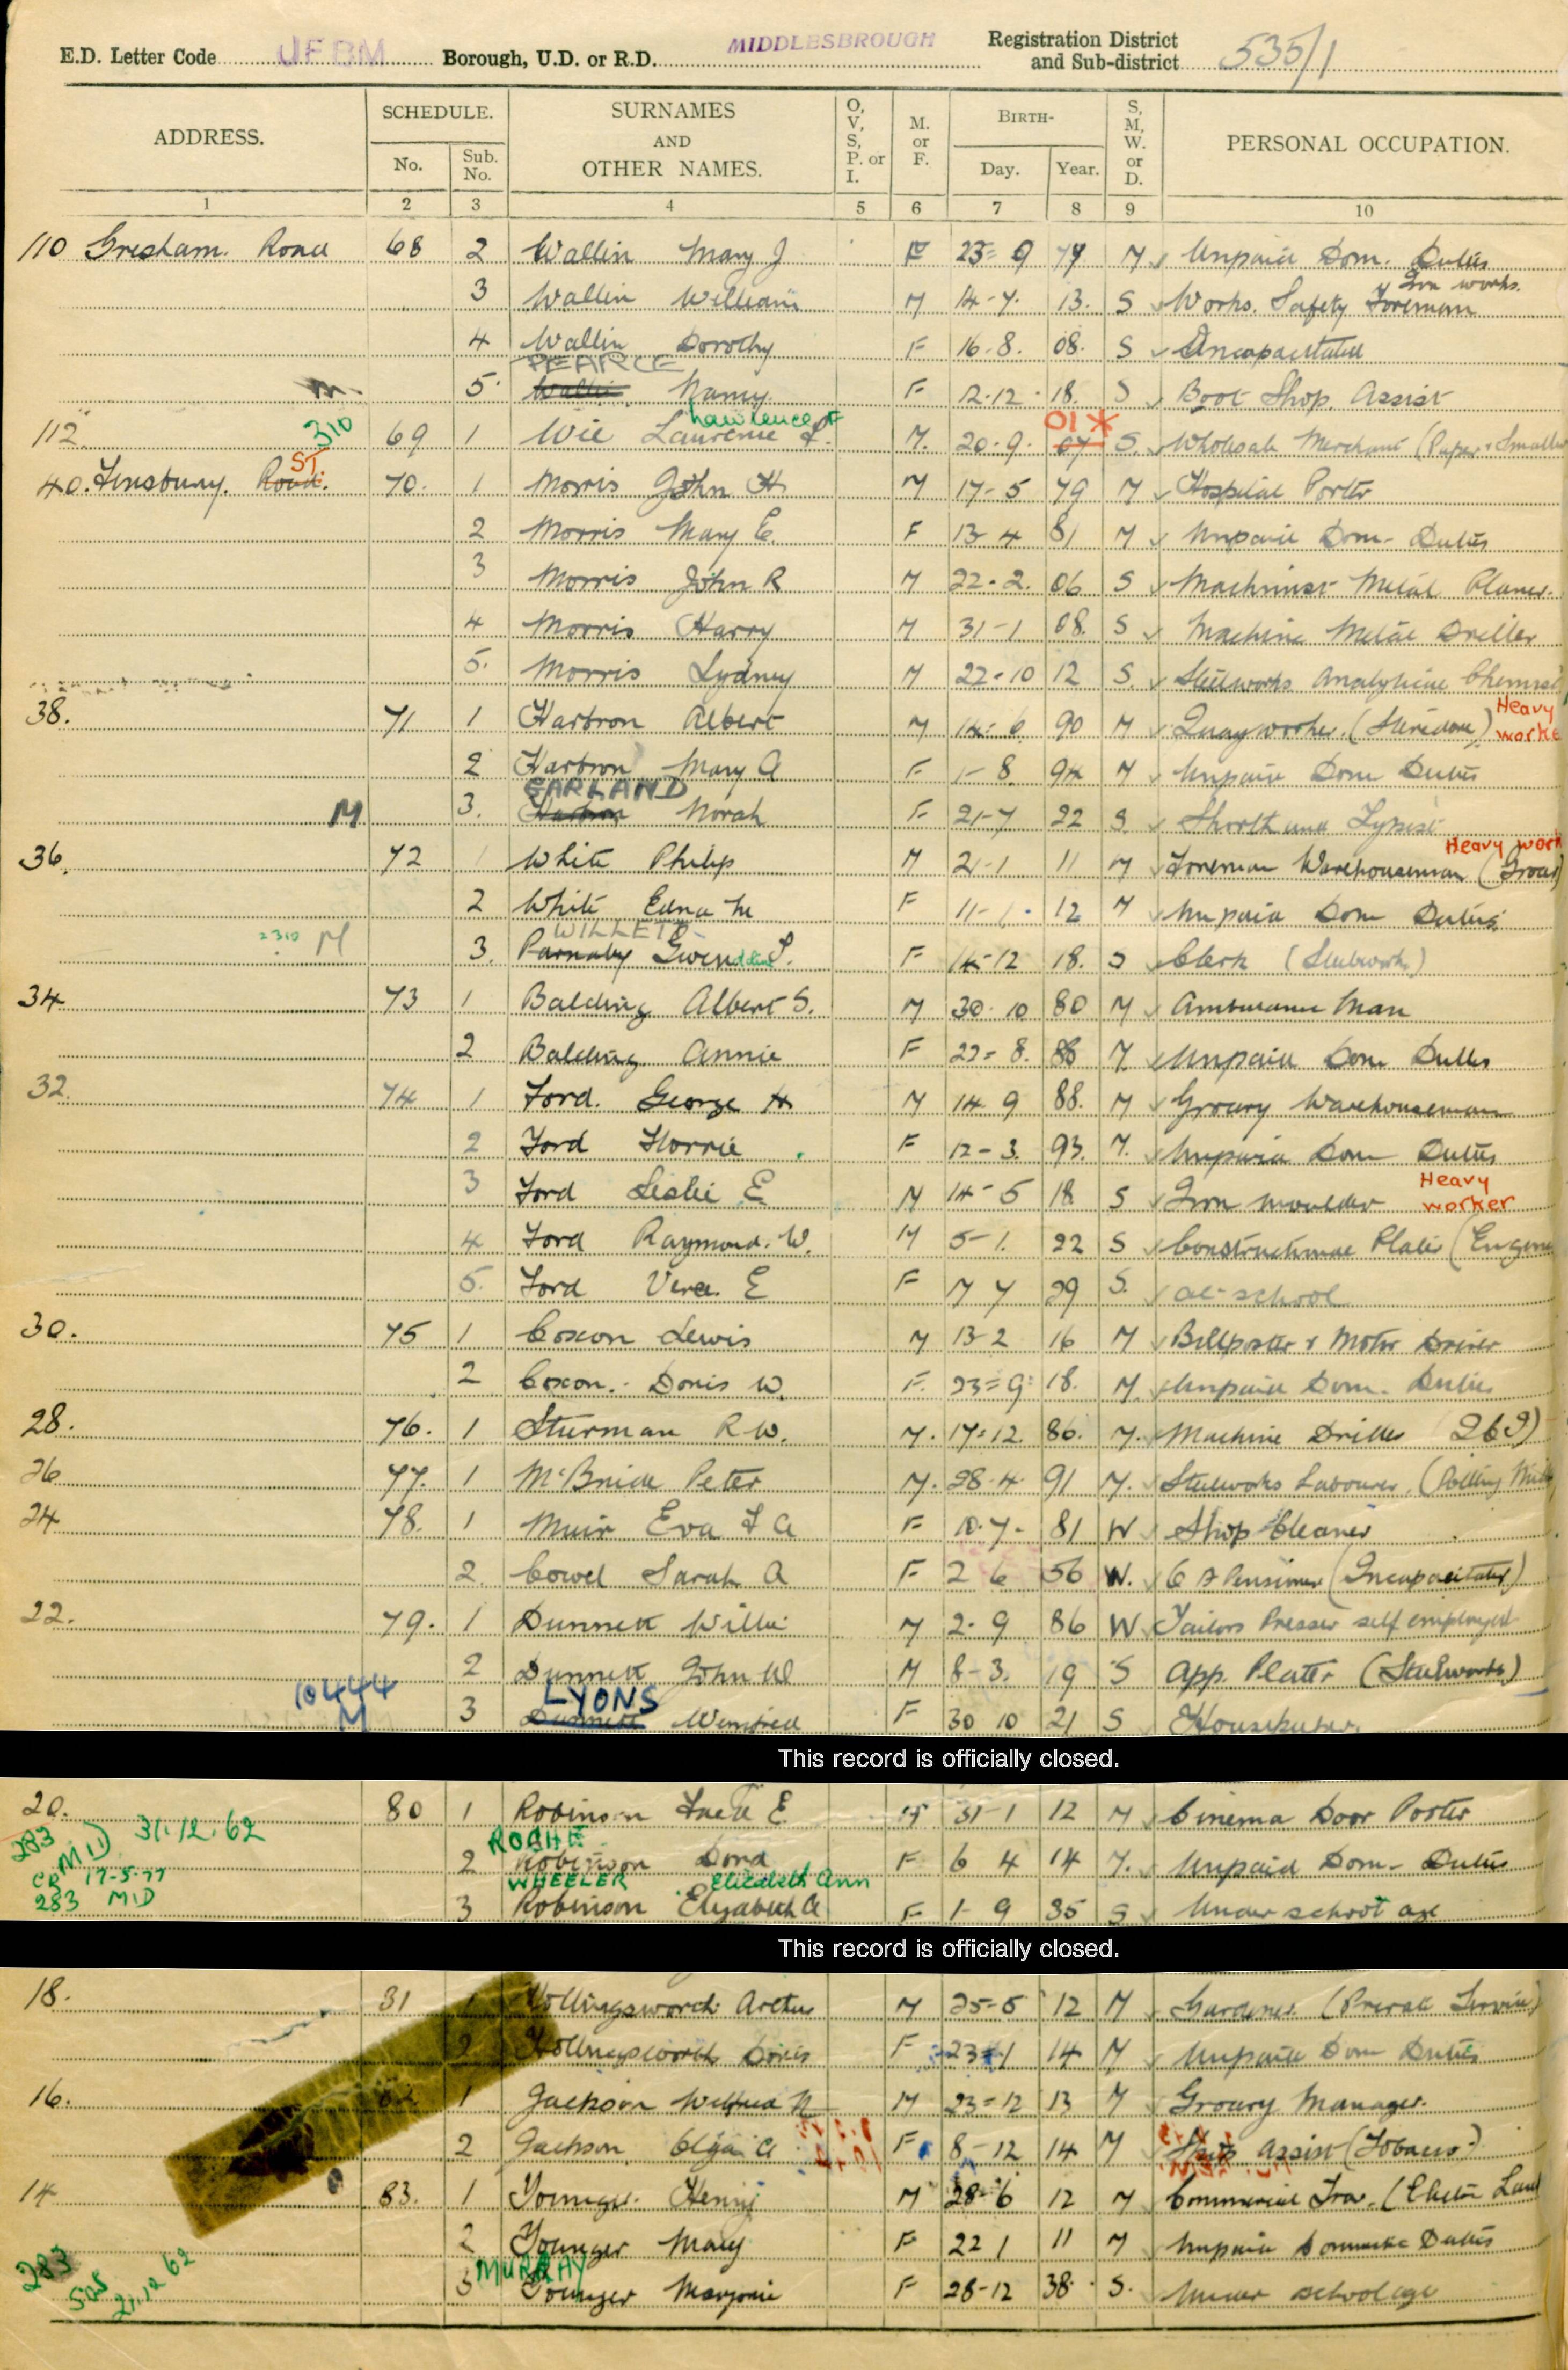 E.D. Letter Code UFBM Borough, U.D. or R.D. MIDDLESBROUGH Registration District and Sub-district 535/1
ADDRESS. SCHEDULE. No. Sub. No. SURNAMES AND OTHER NAMES. O, V, S, P. or I. M. or F. BIRTH- Day. Year. S, M, W. or D. PERSONAL OCCUPATION.
1 2 3 4 5 6 7 8 9 10
110 Gresham. Road 68 2 Wallin Mary J F 23= 9 M Unpaid Dom. Duties
Iron works.
3 Wallin William M 14-7. 13. S Works. Safety Foreman
4 Wallin Dorothy F 16-8. 08. S Incapacitated
PEARCE
m. 5 Wallin Nancy F 12.12 18. S Boot Shop. Assist
310 Lawrence 01 *
112. 69 1 Laurence M. 20.9. 07 S. Wholesale Merchant (Paper
ST
40. Finsbury. Road. 70. 1 Morris John H M 17-5 79 M Hospital Porter
2 Morris Mary E. F 13-4 81 M Unpaid Dom. Duties
3 Morris John R M 22-2. 06 S Machinist Metal Planer.
4 Morris Harry M 31-1 08. S Machine Metal Driller
5. Morris Sydney M 22-10 12 S. Steelworks Analytical Chemist
38. 71 1 Harbron Albert M 14-6 90 M Quay worker. (Stevedore) Heavy worke
2 Harbron Mary A F 1-8. 94 M Unpaid Dom Duties
GARLAND
M 3. Harbron Norah F 21-7 22 S. Shorthand Typist
Heavy work
36. 72 1 White Philip M 21-1 11 M Foreman Warehouseman
2 White Edna M F 11-1. 12 M Unpaid Dom Duties
WILLETP
2310 M 3. Parnaby Gwendoline F 14-12 18. S Clerk (Steelworks)
34 73 1 Balding Albert S. M 30.10 80 M Ambulance Man
2 Balding Annie F 22=8. 88 M Unpaid Dom Duties
32. 74 1 Ford. George H M 14 9 88. M Grocery Warehouseman
2 Ford Florrie F 12-3. 93. M. Unpaid Dom Duties
3 Ford Leslie E M 14-5 18 S Iron moulder Heavy worker
4 Ford Raymond. W. M 5-1. 22 S Constructional Plater
5. Ford Vera E F 7 7 29 S. at school
30. 75 1 Coxon Lewis M 13-2 16 M Billposter & Motor Driver
2 Coxon. Doris W. F. 23=9 18. M. Unpaid Dom. Duties
28. 76. 1 Sturman R W. M. 17=12. 86. M. Machine Driller
26 77. 1 McBride Peter M. 28.4 91 M. Steelworks Labourer. (Rolling
24 78. 1 Muir Eva F A F 10.7. 81 W Shop Cleaner
2. Cowel Sarah A F 2 6 56 W. Pensioner (Incapacitated)
22. 79. 1 Dunnett Willie M 2.9 86 W Tailors Presser self employed
2 Dunnett John W M 8-3. 19 S App. Plater (Steelworks)
LYONS
10444 M 3 Dunnett Winifred F 30 10 21 S Housekeeper.
This record is officially closed.
20. 80 1 Robinson Jack E. M 31-1 12 M Cinema Door Porter
283 MID 31.12.62 ROCHE
2 Robinson Dora F 6 4 14 M. Unpaid Dom. Duties
CR 17-5-77 WHEELER Elizabeth Ann
283 MID 3 Robinson Elizabeth A F 1-9 35 S Under school age
This record is officially closed.
18. 1 Hollingsworth Arthur M 25-5 12 M Gardener (Private Service)
2 Hollingsworth Doris F 23-1 14 M Unpaid Dom Duties
16. 1 Jackson Wilfred M 23=12 13 M Grocery Manager.
2 Jackson F 8-12 14 M Assist (Tobacco)
14 83. 1 Younger. Henry M 28-6 12 M Commercial Trav.
2 Younger Mary F 22 1 11 M Unpaid Domestic Duties
283 MURRAY
505 21.12 62 3 Younger Marjorie F 28-12 38. S. Under school age